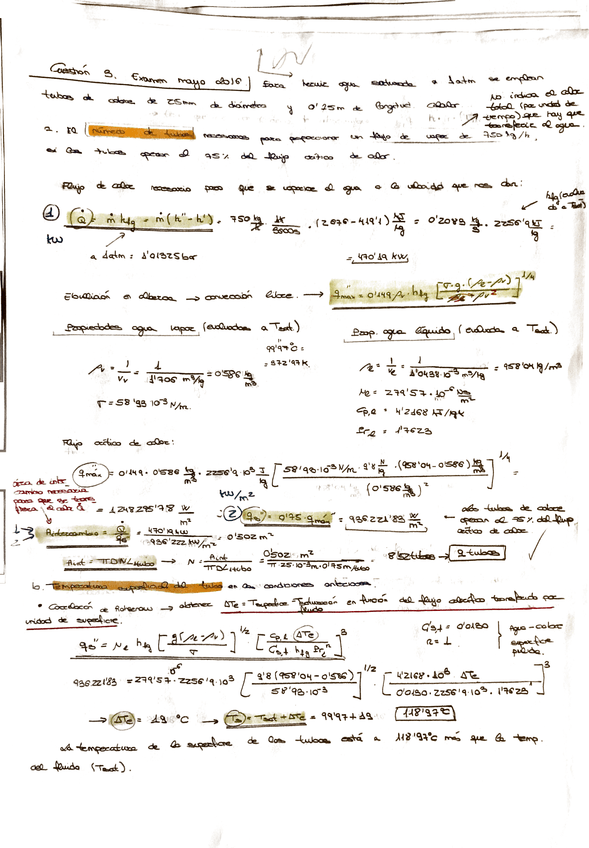 Cuestión 3. Examen mayo 2016 Para hervir agua saturada a 1 atm se emplean
tubos de cobre de 25mm de diámetro y 0'25m de longitud.
no indica el calor
total (por unidad de
tiempo) que hay que
transferir al agua.
a. El número de tubos necesarios para proporcionar un flujo de vapor de 750 kg/h,
si los tubos operan al 75% del flujo crítico de calor.
Flujo de calor necesario para que se vaporice el agua a la velocidad que nos dan:
hfg (evaluada a Tsat)
① Q̇ = ṁ hfg = ṁ(h''-h') = 750 kg/h · 1h/3600s · (2676-419'1) kJ/kg = 0'2083 kg/s · 2256'9 kJ/kg =
kW
a 1atm = 1'01325bar
= 470'19 kW
Ebullición en alberca → convección libre. → q''máx = 0'149 ρv · hfg [σ·g·(ρl-ρv)/ρv²]^1/4
Propiedades agua vapor (evaluadas a Tsat)
99'97°C =
= 372'97K
Prop. agua líquida (evaluadas a Tsat)
ρv = 1/vv = 1/1'706 m³/kg = 0'586 kg/m³
ρl = 1/vl = 1/1'0438·10⁻³ m³/kg = 958'04 kg/m³
σ = 58'93·10⁻³ N/m.
μl = 279'57·10⁻⁶ Ns/m²
Cp,l = 4'2168 kJ/kgK
Prl = 1'7623
Flujo crítico de calor:
q''máx = 0'149 · 0'586 kg/m³ · 2256'9·10³ J/kg [58'93·10⁻³ N/m · 9'8 N/kg · (958'04-0'586) kg/m³ / (0'586 kg/m³)²]^1/4 =
área de inter-
cambio necesaria
para que se trans-
fiera el calor Q̇
= 1248295'78 W/m²
kW/m²
② q''s = 0'75 · q''máx = 936221'83 W/m²
los tubos de cobre
operan al 75% del flujo
crítico de calor
Aintercambio = Q̇/q''s = 470'19 kW/936'222 kW/m² = 0'502 m²
Aint = πDNLtubo → N = Aint/πDLtubo = 0'502 m²/π·25·10⁻³m·0'75m/tubo 8'52 tubos → 9 tubos
b. Temperatura superficial del tubo en las condiciones anteriores.
* Correlación de Rohsenow → obtener ΔTe = Tsuperficie - Tsaturación fluido en función del flujo calorífico transferido por
unidad de superficie.
q''s = μl hfg [g(ρl-ρv)/σ]^1/2 [Cp,l ΔTe/Cs,f hfg Prl^n]^3
Cs,f = 0'0130
n = 1
agua-cobre
superficie
pulida.
936221'83 = 279'57·10⁻⁶ · 2256'9·10³ [9'8(958'04-0'586)/58'93·10⁻³]^1/2 · [4'2168·10³ ΔTe/0'0130·2256'9·10³·1'7623]^3
→ ΔTe = 19 °C → Ts = Tsat + ΔTe = 99'97+19 118'97°C
La temperatura de la superficie de los tubos está a 118'97°C más que la temp.
del fluido (Tsat).